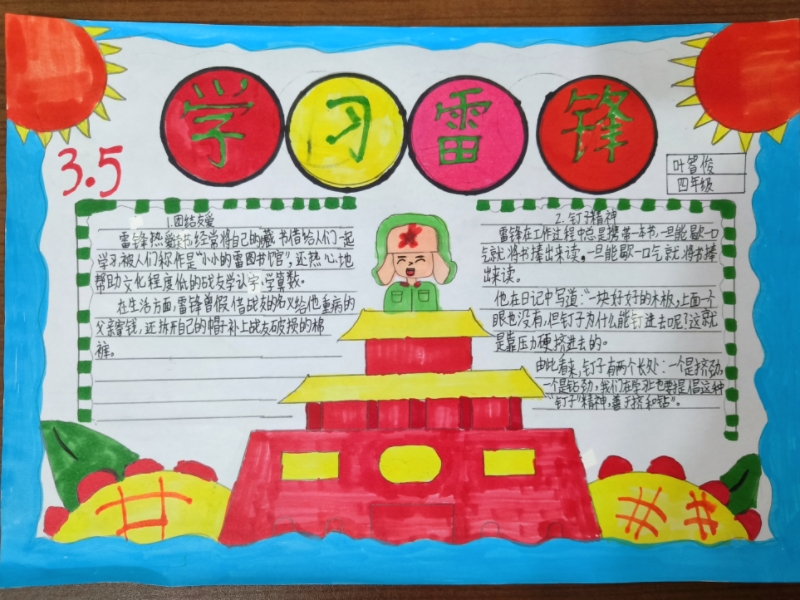 学习雷锋
3.5
叶智俊
四年级
1.团结友爱
雷锋热爱读书,经常将自己的藏书借给人们一起
学习被人们称作是“小小的雷图书馆”,还热心地
帮助文化程度低的战友学认字,学算数。
在生活方面,雷锋曾假借战友的名义给他重病的
父亲寄钱,还拆开自己的帽子补上战友破损的棉
裤。
2.钉子精神
雷锋在工作过程中总是携带一本书,一旦能歇一口
气就将书捧出来读。一旦能歇一口气就将书捧
出来读。
他在日记中写道:“一块好好的木板,上面一个
眼也没有,但钉子为什么能钉进去呢?这就
是靠压力硬挤进去的。
由此看来,钉子有两个长处:一个是挤劲,
一个是钻劲,我们在学习上也要提倡这种
“钉子”精神,善于挤和钻”。